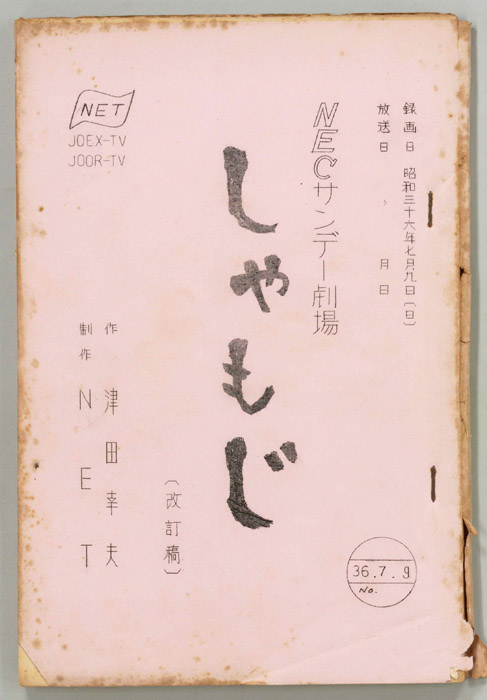 録画日 昭和三十六年七月九日(日)
放送日 、 月 日
NECサンデー劇場
しゃもじ
(改訂稿)
作 津田幸夫
制作 NET
NET
JOEX-TV
JOOR-TV
36.7.9
No.